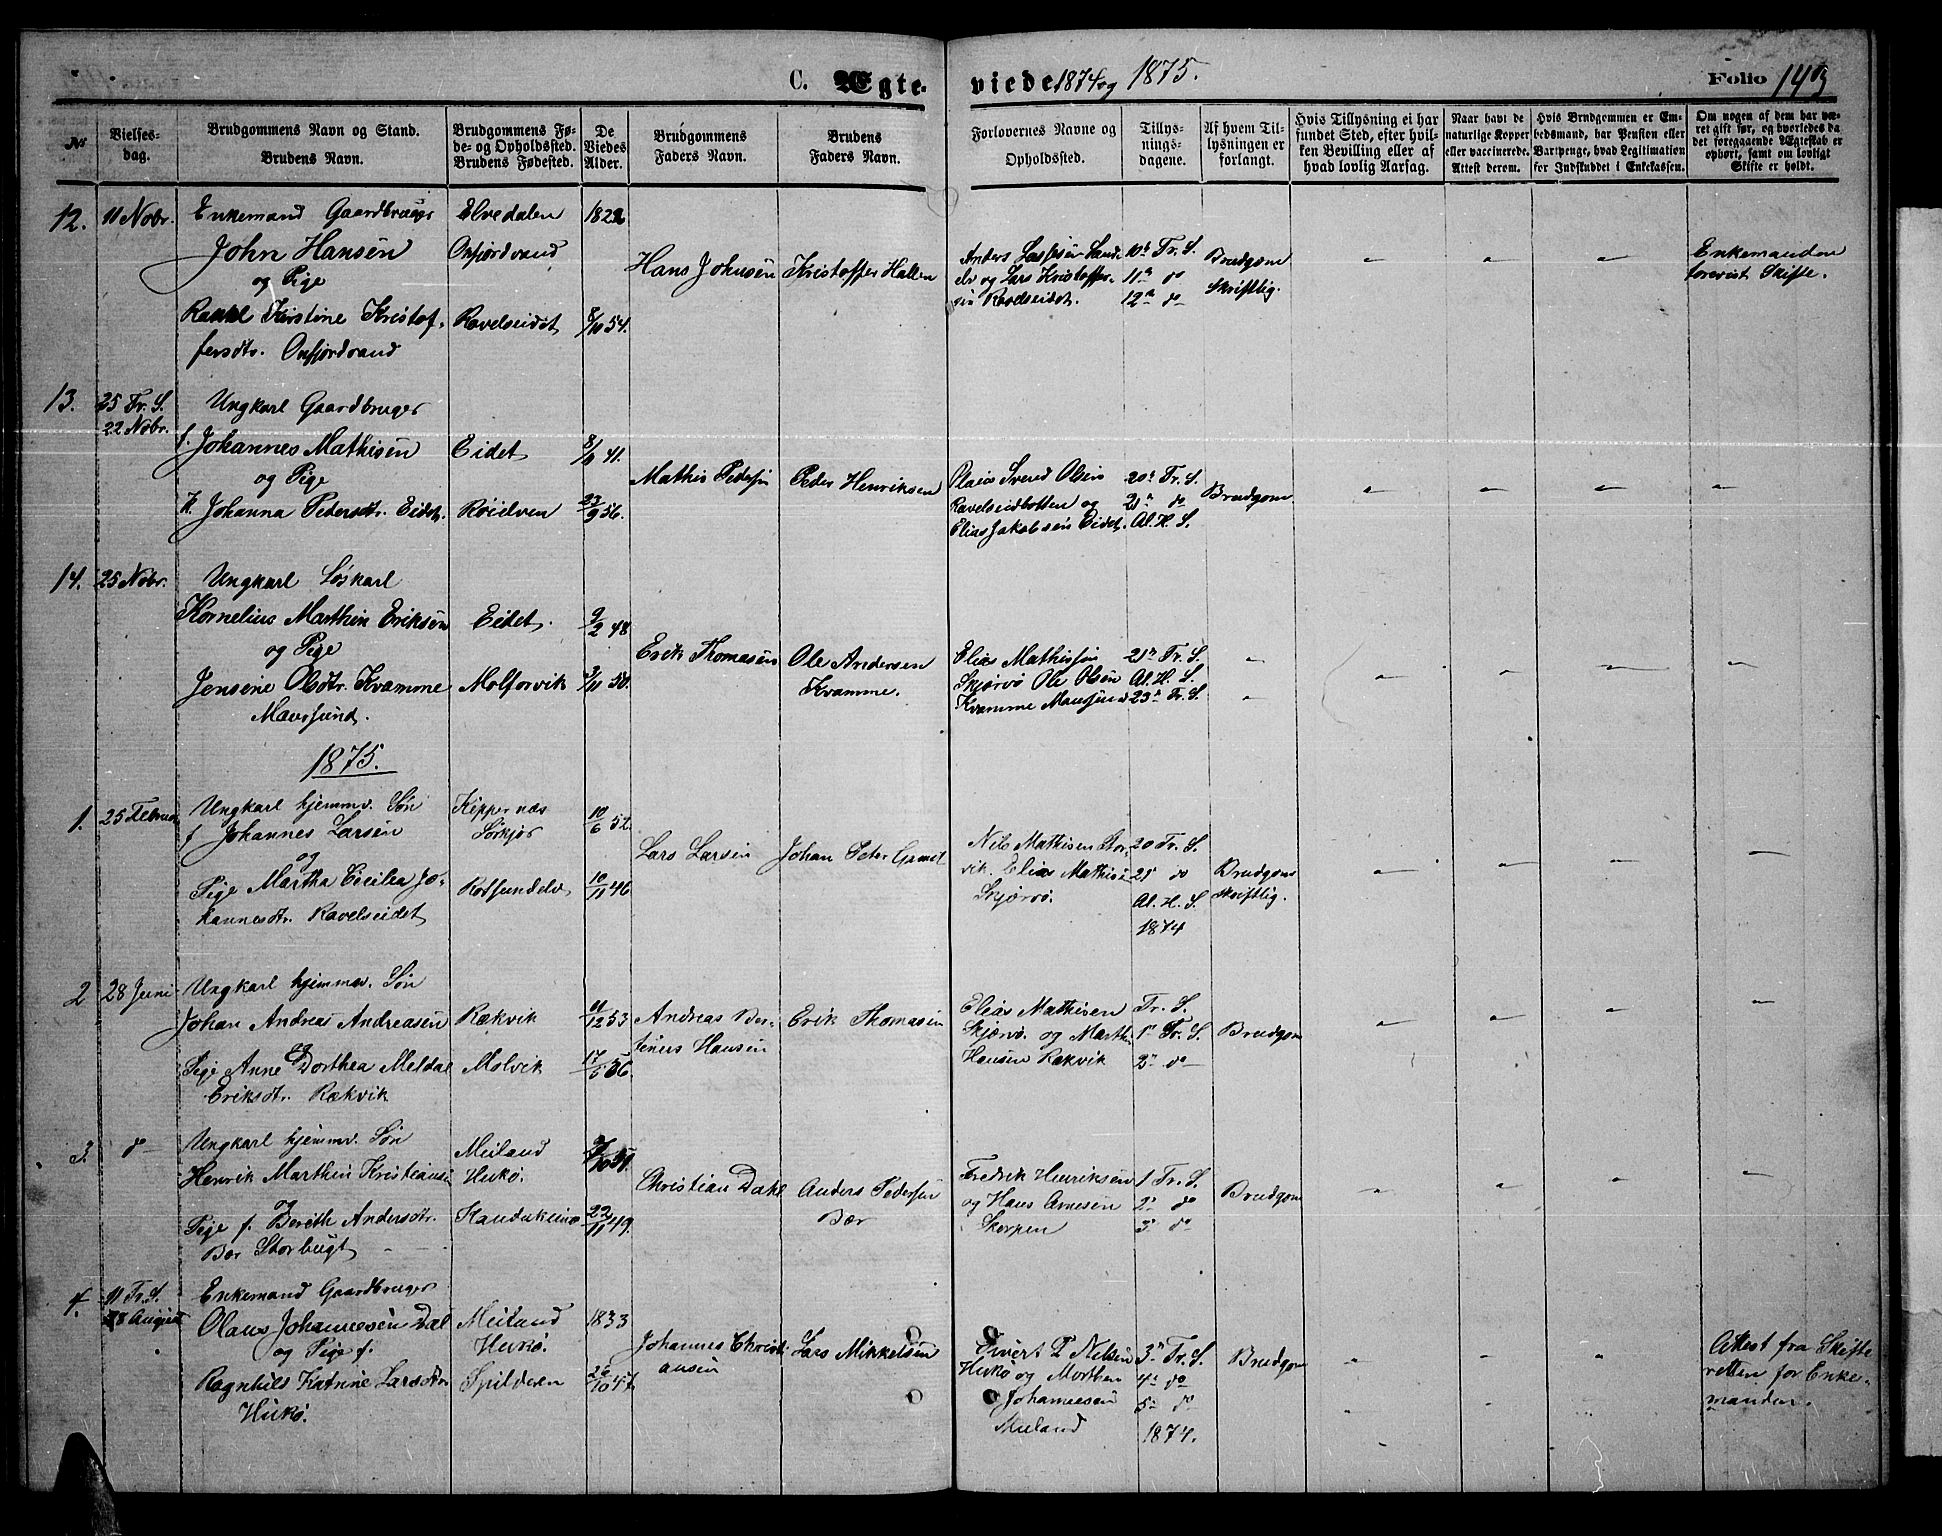 C. Ægteviede 1874 og 1875. Folio 143
No
Vielses-
dag.
Brudgommens Navn og Stand.
Brudens Navn.
Brudgommens Fø-
de- og Opholdssted.
Brudens Fødested.
De
Viedes
Alder.
Brudgommens
Faders Navn.
Brudens
Faders Navn.
Forlovernes Navne og
Opholdssted.
Tillys-
nings-
dagene.
Af hvem Til-
lysningen er
forlangt.
Hvis Tillysning ei har
fundet Sted, efter hvil-
ken Bevilling eller af
hvad lovlig Aarsag.
Naar havt de
naturlige Kopper
eller vaccinerede.
Attest derom.
Hvis Brudgommen er Em-
bedsmand, har Pension eller
Vartpenge, hvad Legitimation
for Indskuddet i Enkekassen.
Om nogen af dem har væ-
ret gift før, og hvorledes da
det foregaaende Ægteskab er
ophørt, samt om lovligt
Skifte er holdt.
12. 11 Nobr.
Enkemand Gaardbruger
John Hansen
og Pige
Kirstine Kristof-
fersdtr. Oxfjordvand
Elvedalen
Oxfjordvand
Ravelseidet
8/10 54.
Hans Johnsen
Kristoffer Hallen
og Lars Kristoffer-
10de Tr. S.
11te do
12te do
Brudgom
Skriftlig.
Enkemanden
forevist Skifte.
13. 25 Tr. S.
22 Nobr.
Ungkarl Gaardbruger
f. Johannes Mathisen
og Pige
K. Johanna Pedersdtr. Eidet.
Eidet
Röielven
41.
23/9 56.
Mathis Pedersen
Peder Henriksen
Svend Olsen
Ravelseidbotten og
Elias Jakobsen Eidet.
20de Tr. S.
21de do
Al. H. S.
Brudgom
14. 25 Nobr.
Ungkarl Løskarl
Kornelius Marthin Eriksen
og Pige
Jensine Olsdtr. Kvamme
Maursund.
Eidet.
Molforvik
9/2 48
50.
Erik Thomasen
Ole Andersen
Kvamme.
Elias Mathissen
Skjærvö Ole Olsen
Kvamme Maursund
21de Tr. S.
Al. H. S.
23de Tr. S.
1875.
1. 25 Februar
Ungkarl hjemmv. Søn
f Johannes Larsen
og
Pige Martha Cecilia Jo-
hannesdtr. Ravelseidet
Keppernæs
Sörkjos
Rotsundelv
10/6 52.
10/11 46
Lars Larsen
Johan Peter
Nils Mathisen Stor-
vik. Elias Mathisen
Skjærvö.
20 Tr. S.
21 do
Al. H. S.
1874
Brudgom
skriftlig.
2 28 Juni
Ungkarl hjemmv. Søn
Johan Andreas Andreasen
og
Pige Anne Dorthea Meldal
Eriksdtr. Rækvik
Rækvik
Molvik
11/12 53
17/5 56.
Andreas Ber-
tinus Hansen
Erik Thomasen
Elias Mathisen
Skjærvö. og Marthin
Hansen Rækvik
Tr. S.
1ste Tr. S.
2den do
Brudgom
3. do
Ungkarl hjemmv. Søn
Henrik Marthin Kristiansen
og
Pige f. Berith Andersdtr.
Bær Storbugt
Meiland
Hukö.
Kautokeino
22/11 49.
Christian Dahl
Anders Pedersen
Bær
Fredrik Henriksen
og Hans Arnesen
Skorpen
1 Tr. S.
2 do
3 do
Brudgom
4. 11 Tr. S.
8 August
Enkemand Gaardbruger
Olaus Johannesen Dal
og Pige f.
Ragnhild Katrine Larsdtr.
Hukö.
Meiland
Hukö.
Spilderen
1833
Johannes Christi-
ansen
Lars Mikkelsen
Sivert P. Nilsen
Hukö og Morthen
Johannesen
Meiland
3die Tr. S.
4de do
5te do
1874.
Brudgom
Attest fra Skifte-
retten for Enke-
manden.